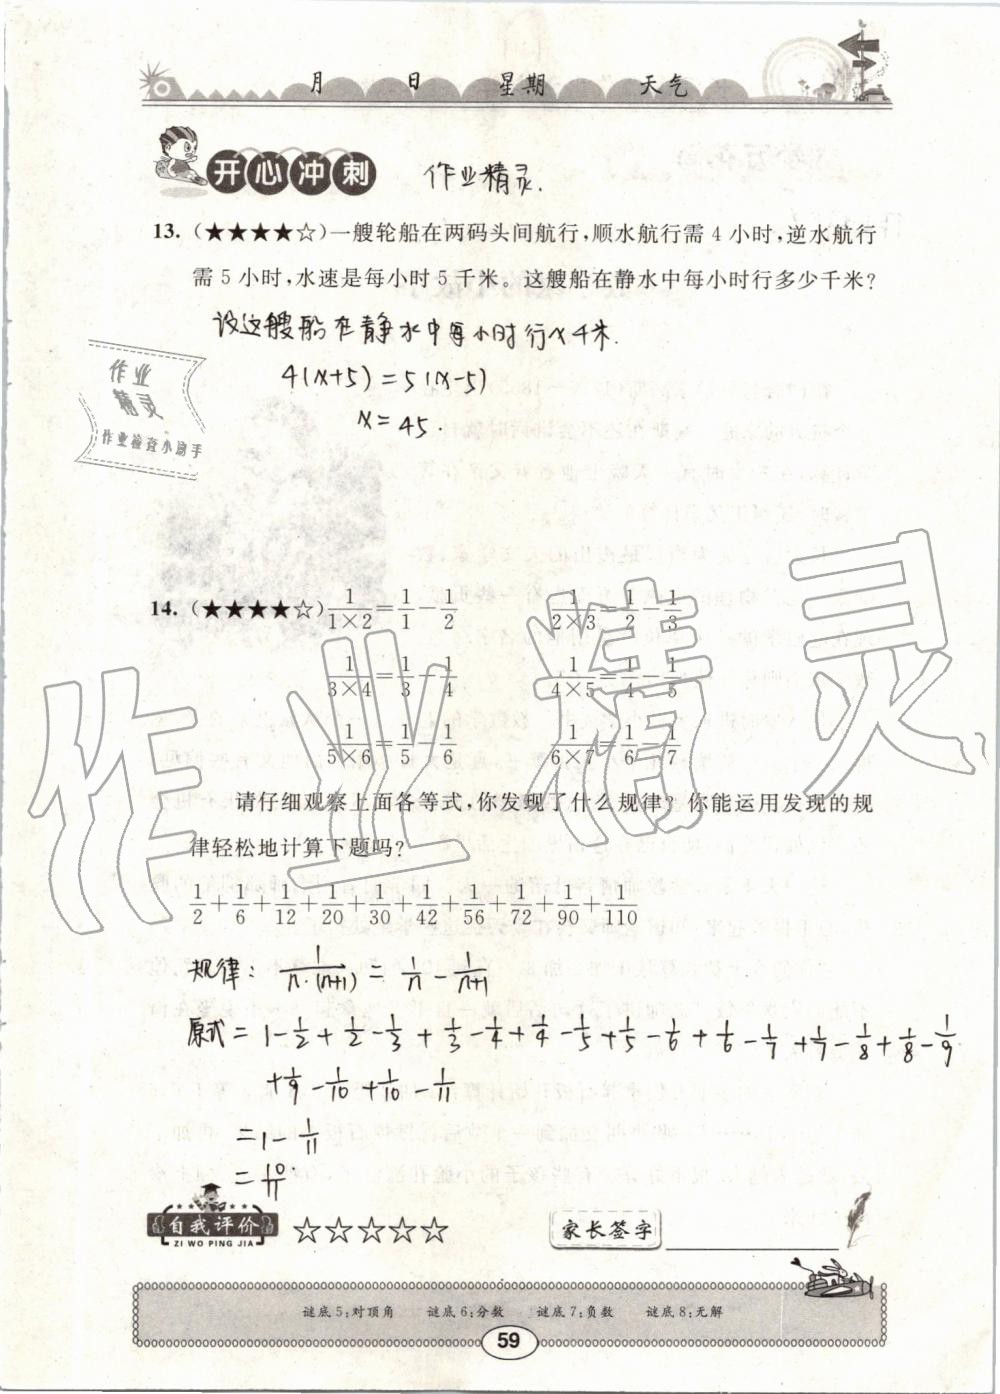 月 日 星期 天气
开心冲刺 作业精灵.
13. (★★★★☆)一艘轮船在两码头间航行,顺水航行需 4 小时,逆水航行
需 5 小时,水速是每小时 5 千米。这艘船在静水中每小时行多少千米?
设这艘船在静水中每小时行x千米.
4(x+5)=5(x-5)
x=45.
作业
精灵
作业检查小助手
14. (★★★★☆) 1/(1×2)=1/1-1/2 1/(2×3)=1/2-1/3
1/(3×4)=1/3-1/4 1/(4×5)=1/4-1/5
1/(5×6)=1/5-1/6 1/(6×7)=1/6-1/7
作业精灵
请仔细观察上面各等式,你发现了什么规律?你能运用发现的规
律轻松地计算下题吗?
1/2+1/6+1/12+1/20+1/30+1/42+1/56+1/72+1/90+1/110
规律: 1/(n·(n+1))=1/n-1/(n+1)
原式=1-1/2+1/2-1/3+1/3-1/4+1/4-1/5+1/5-1/6+1/6-1/7+1/7-1/8+1/8-1/9
+1/9-1/10+1/10-1/11
=1-1/11
=10/11.
自我评价 ☆☆☆☆☆ 家长签字
ZI WO PING JIA
谜底5:对顶角 谜底6:分数 谜底7:负数 谜底8:无解
59